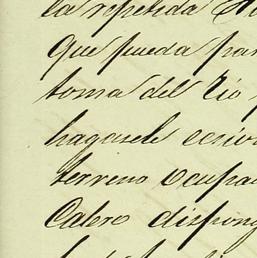 la repetida
que pueda par
toma del Rio
hagasele
terreno ocupa
Calero dispong